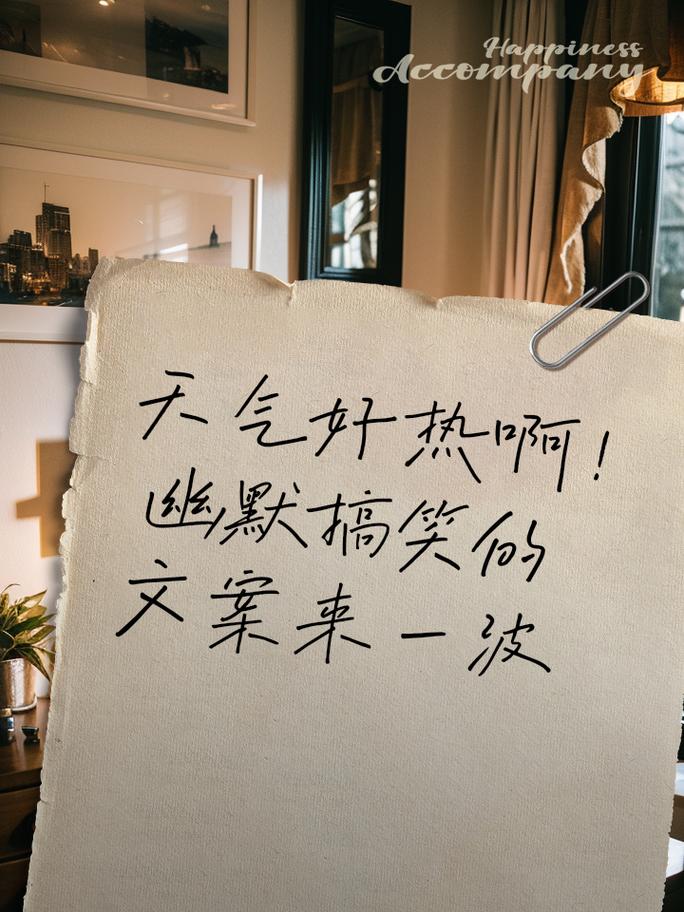 Happiness
Accompany
天气好热啊！
幽默搞笑的
文案来一波